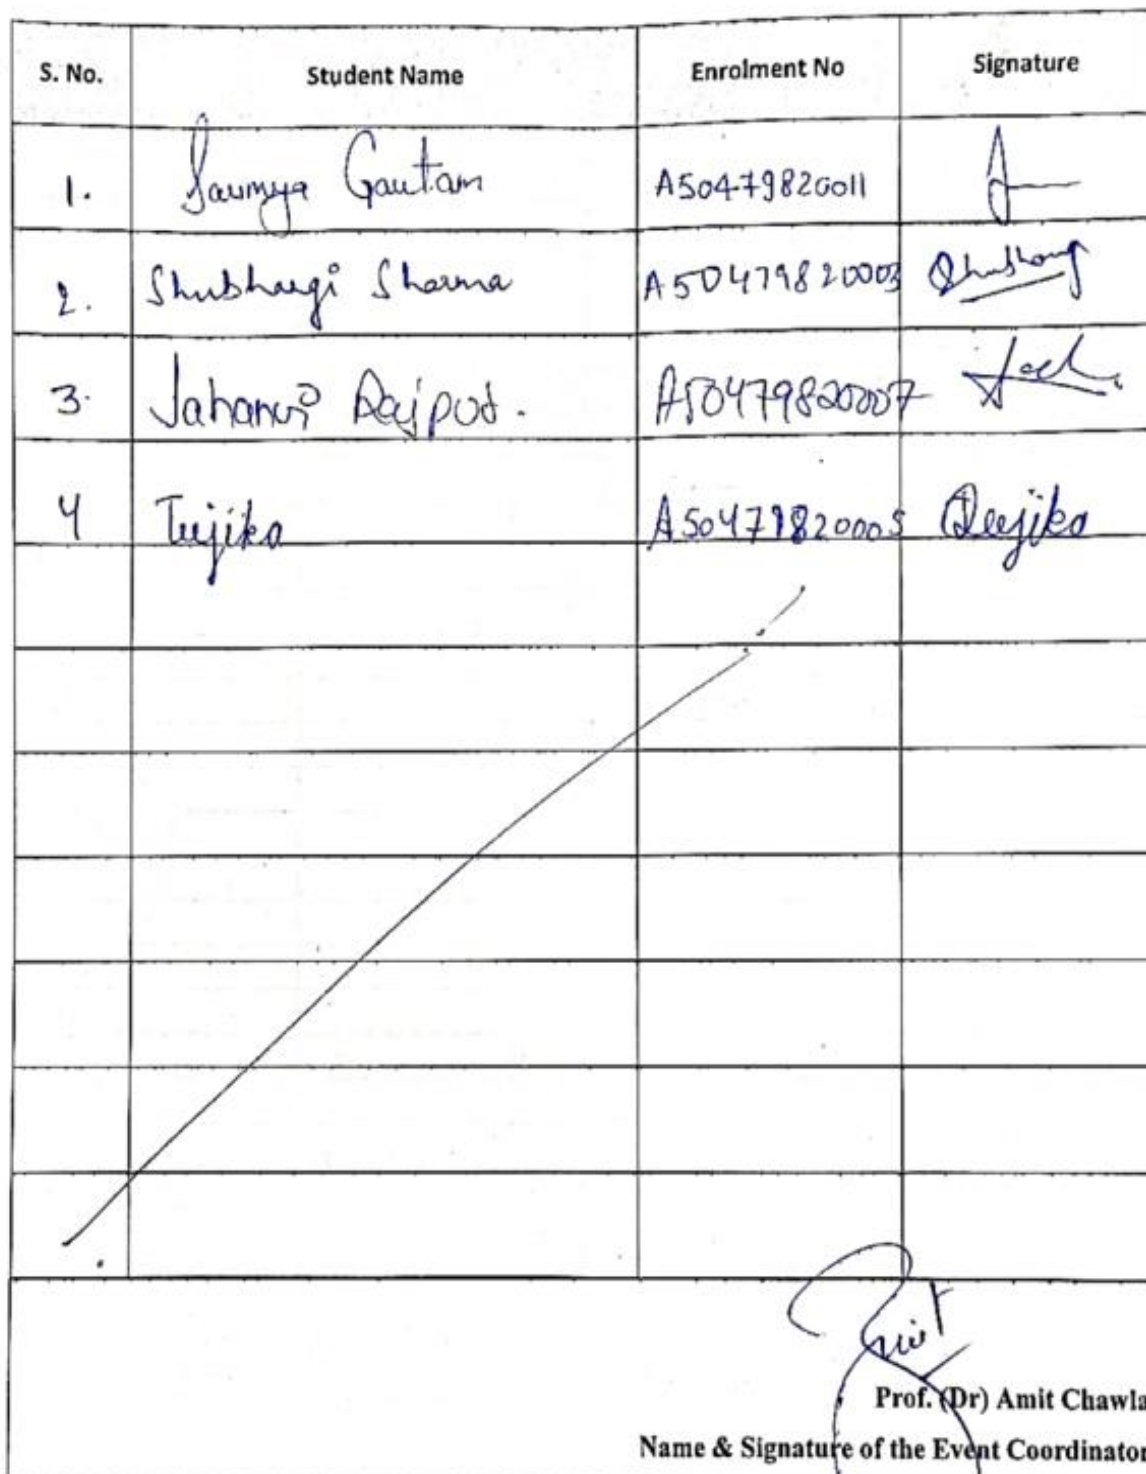 S. No. Student Name Enrolment No Signature
1. Saumya Gautam A50479820011
2. Shubhangi Sharma A50479820003 Shubhang
3. Jahanvi Rajput. A50479820007
4 Tujika A50479820005 Tujika
Amit
Prof. (Dr) Amit Chawla
Name & Signature of the Event Coordinator